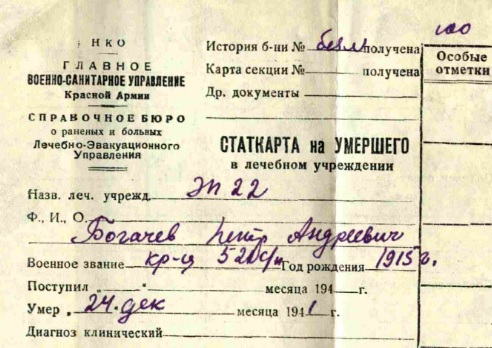 НКО
ГЛАВНОЕ
ВОЕННО-САНИТАРНОЕ УПРАВЛЕНИЕ
Красной Армии
СПРАВОЧНОЕ БЮРО
о раненых и больных
Лечебно-Эвакуационного
Управления
История б-ни № получена
Карта секции № получена
Др. документы
Особые
отметки
СТАТКАРТА на УМЕРШЕГО
в лечебном учреждении
Назв. леч. учрежд. ЭП 22
Ф., И., О.
Богачев Петр Андреевич
Военное звание кр-ц 520 Год рождения 1915 г.
Поступил „ “ месяца 194 г.
Умер „ 24 дек месяца 1941 г.
Диагноз клинический